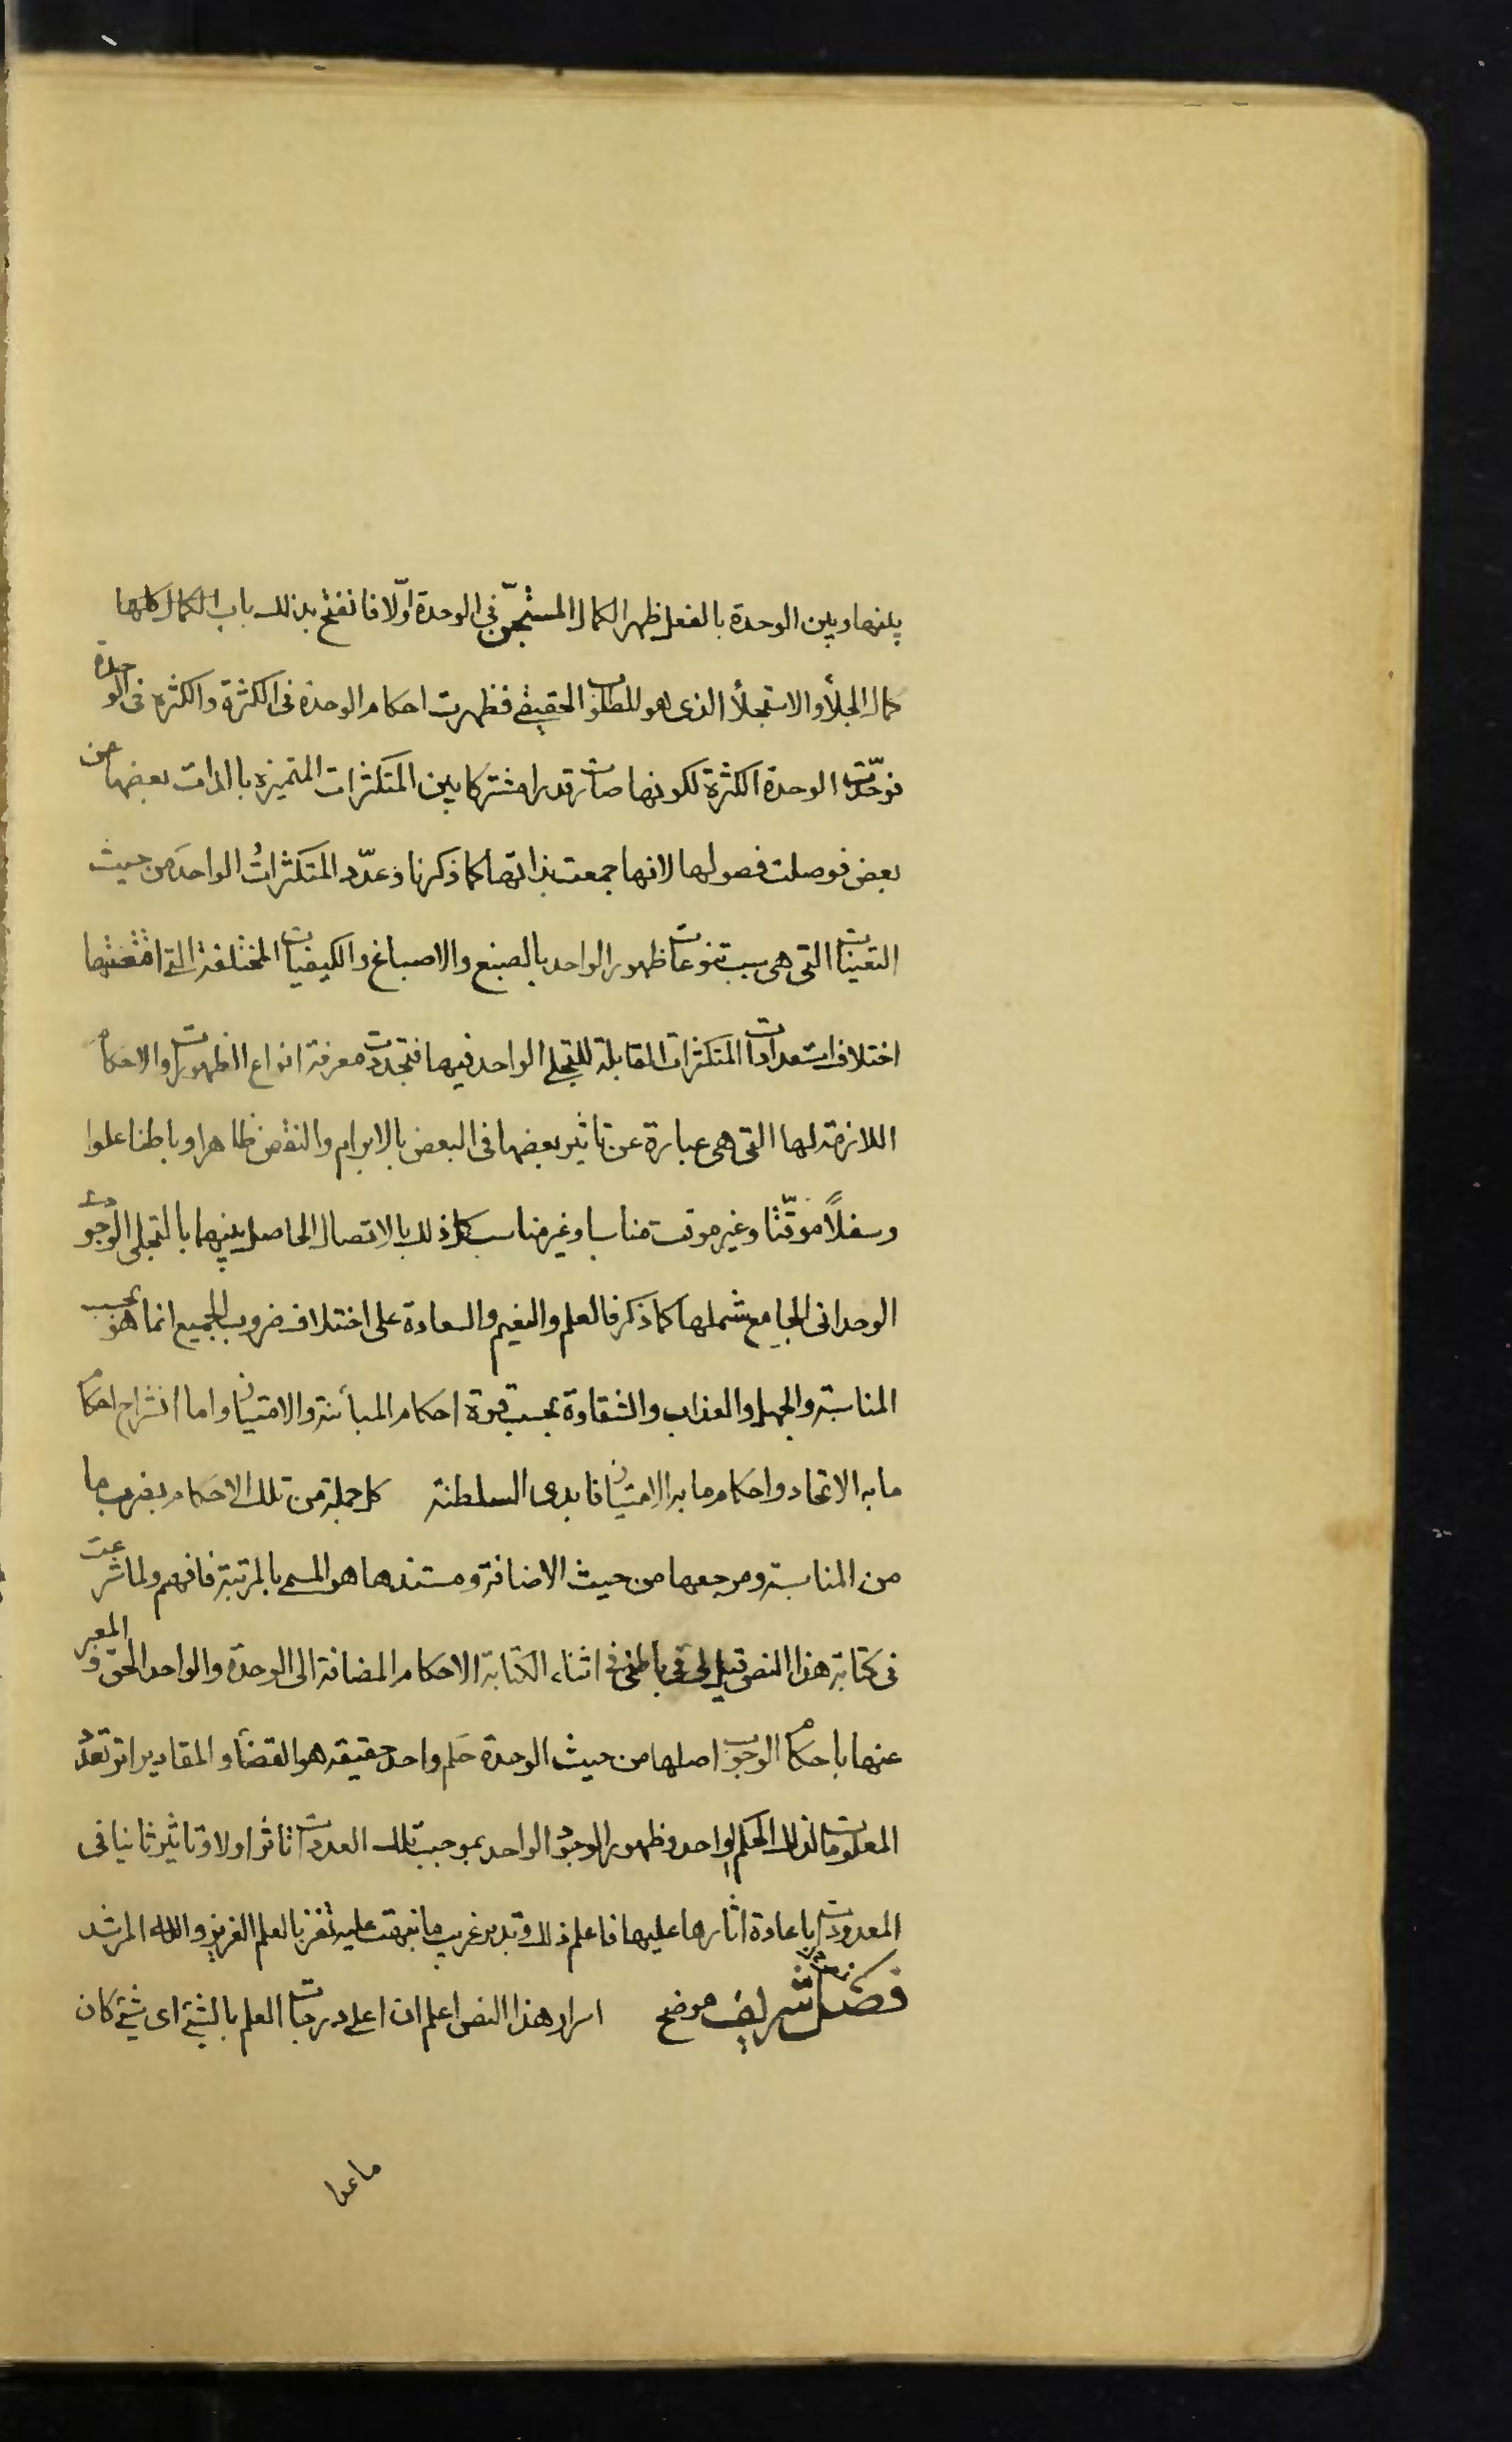 بينها وبين الوحدة بالفعل ظهر الكمال المستجنّ فى الوحدة اوّلا فانفتح بذلك باب الكمال كلها
كمال الجلأ والاستجلأ الذى هو المطلوب الحقيقى فظهرت احكام الوحدة فى الكثرة والكثره فى الوحدة
فوحّدت الوحدة الكثرة لكونها صارت قدرا مشتركا بين المتكثرات المتميزه بالذات بعضها من
بعض فوصلت فصولها لانها جمعت بذاتها كما ذكرنا وعدّد المتكثراتُ الواحدَ من حيث
التعينات التى هى سبب تنوعات ظهور الواحد بالصبغ والاصباغ والكيفيات المختلفة التى اقتضتها
اختلاف استعدادات المتكثرات القابلة للتجلى الواحد فيها فتجددت معرفة انواع الظهورات والاحكام
اللازمة لها التى هى عبارة عن تاثير بعضها فى البعض بالابرام والنقض ظاهرا وباطنا علوا
وسفلاً موقّتا وغير موقت مناسبا وغير مناسب كل ذلك بالاتصال الحاصل بينهما بالتجلى الوجودى
الوحدانى الجامع شملها كما ذكر فالعلم والنعيم والسعادة على اختلاف ضروب الجميع انما هو بحسب
المناسبة والجهل والعذاب والشقاوة بحسب قوة احكام المباينة والامتياز واما امتزاج احكام
ما به الاتحاد واحكام ما به الامتياز فابدى السلطنة كل جملة من تلك الاحكام بضرب ما
من المناسبة ومرجعها من حيث الاضافة ومستندها هو المسمى بالمرتبة فافهم ولما شرعت
فى كتابة هذا النص قيل لى فى باطنى فى اثناء الكتابة الاحكام المضافة الى الوحدة والواحد الحق والمعبر
عنها باحكام الوجوب اصلها من حيث الوحدة حكم واحد حقيقه هو القضأ والمقادير اثر تعدد
المعلومات لذلك الحكم الواحد وظهور الوجود الواحد بموجب تلك العددات تاثرا اولا وتاثيرا ثانيا فى
المعدودات باعادة اثارها عليها فاعلم ذلك وتدبر غريب ما نبهت عليه تفز بالعلم الغزيز والله المرشد
نص
فصل شريف موضح اسرار هذا النص اعلم ان اعلى درجات العلم بالشئ اى شئ كان